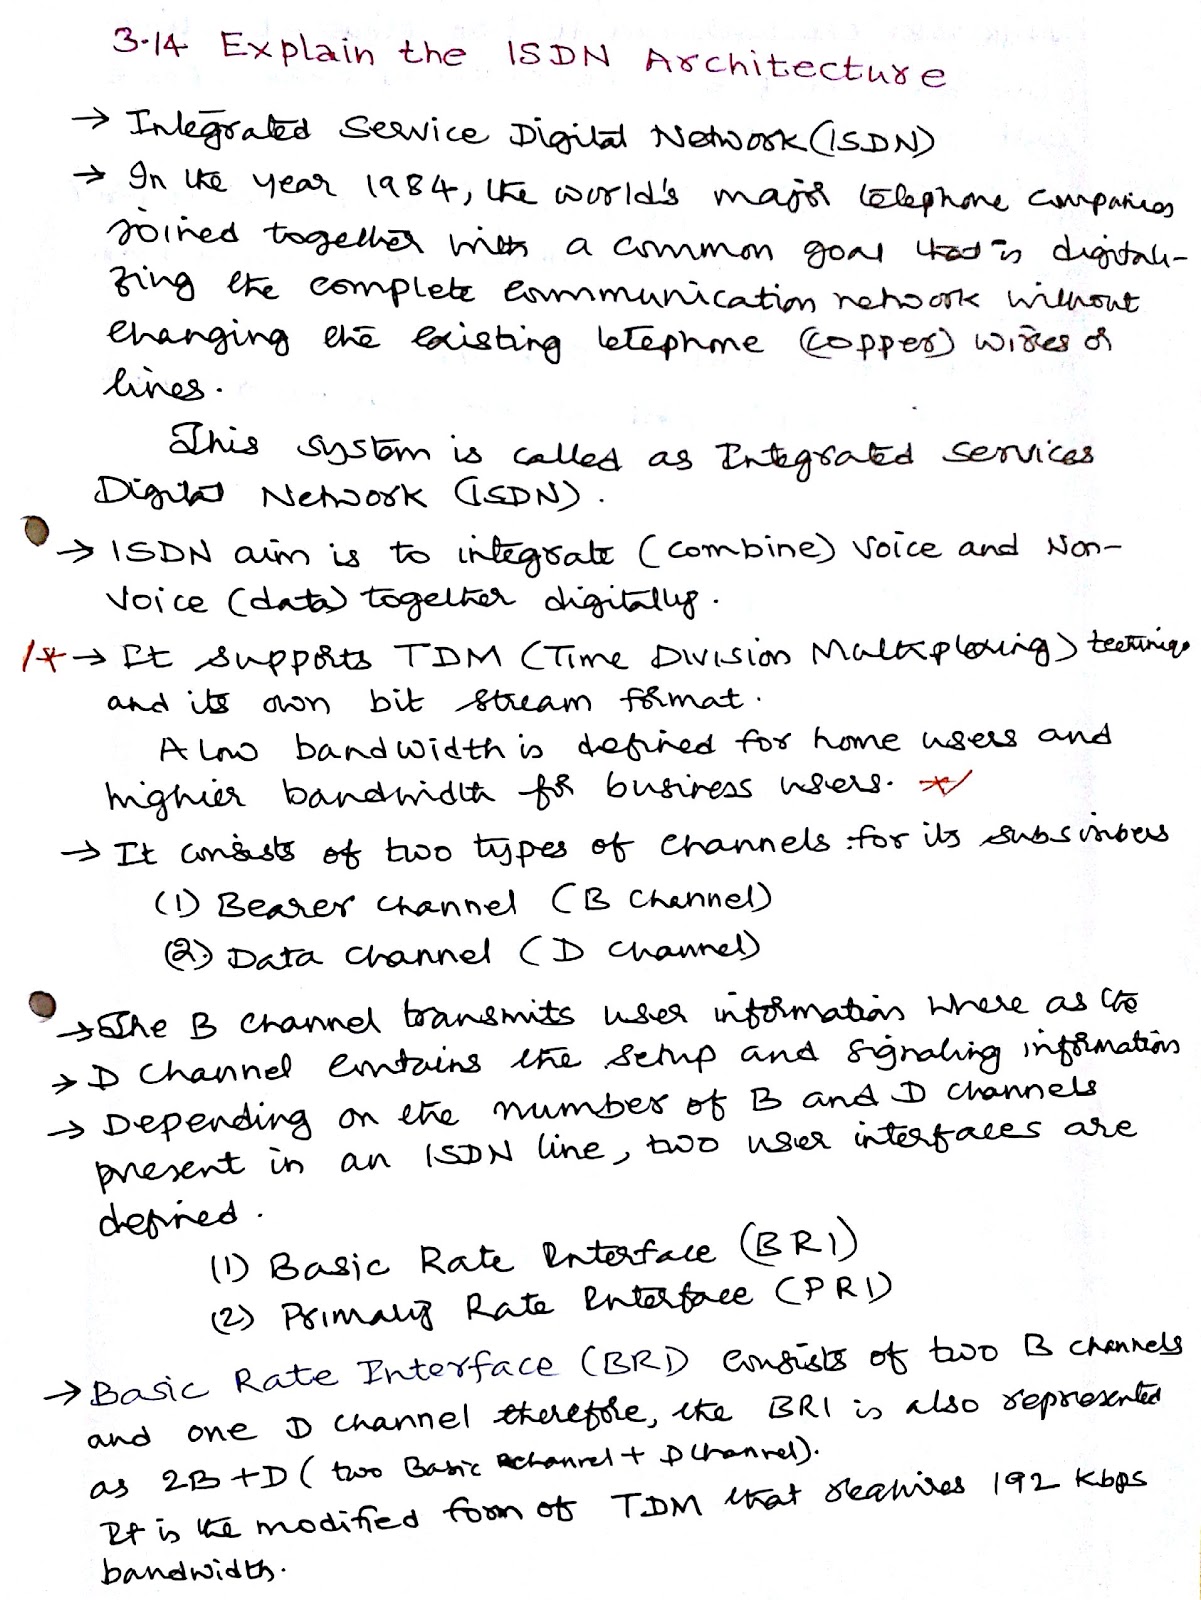 3.14 Explain the ISDN Architecture
→ Integrated Service Digital Network (ISDN)
→ In the year 1984, the world's major telephone companies
joined together with a common goal that is digitali-
zing the complete communication network without
changing the existing telephone (copper) wires or
lines.
This system is called as Integrated Services
Digital Network (ISDN).
→ ISDN aim is to integrate (combine) voice and Non-
voice (data) together digitally.
/* → It supports TDM (Time Division Multiplexing) technique
and its own bit stream format.
A low bandwidth is defined for home users and
highier bandwidth for business users. */
→ It consists of two types of channels for its subscribers
(1) Bearer channel (B Channel)
(2) Data channel (D channel)
→ The B channel transmits user information where as the
→ D channel contains the setup and signaling information
→ Depending on the number of B and D channels
present in an ISDN line, two user interfaces are
defined.
(1) Basic Rate Interface (BRI)
(2) Primary Rate Interface (PRI)
→ Basic Rate Interface (BRI) consists of two B channels
and one D channel therefore, the BRI is also represented
as 2B+D (two Basic channel + D channel).
It is the modified form of TDM that requires 192 Kbps
bandwidth.